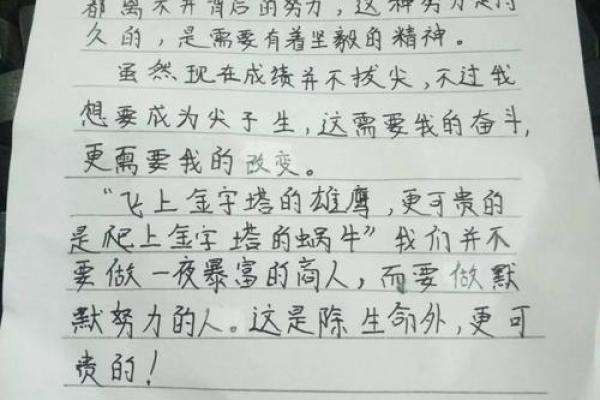 都离不开背后的努力，这种努力是持
久的，是需要有着坚毅的精神。
虽然现在成绩并不拔尖，不过我
想要成为尖子生，这需要我的奋斗，
更需要我的改变。
“飞上金字塔的雄鹰，更可贵的
是爬上金字塔的蜗牛”我们并不
要做一夜暴富的商人，而要做默
默努力的人。这是除生命外，更可
贵的！